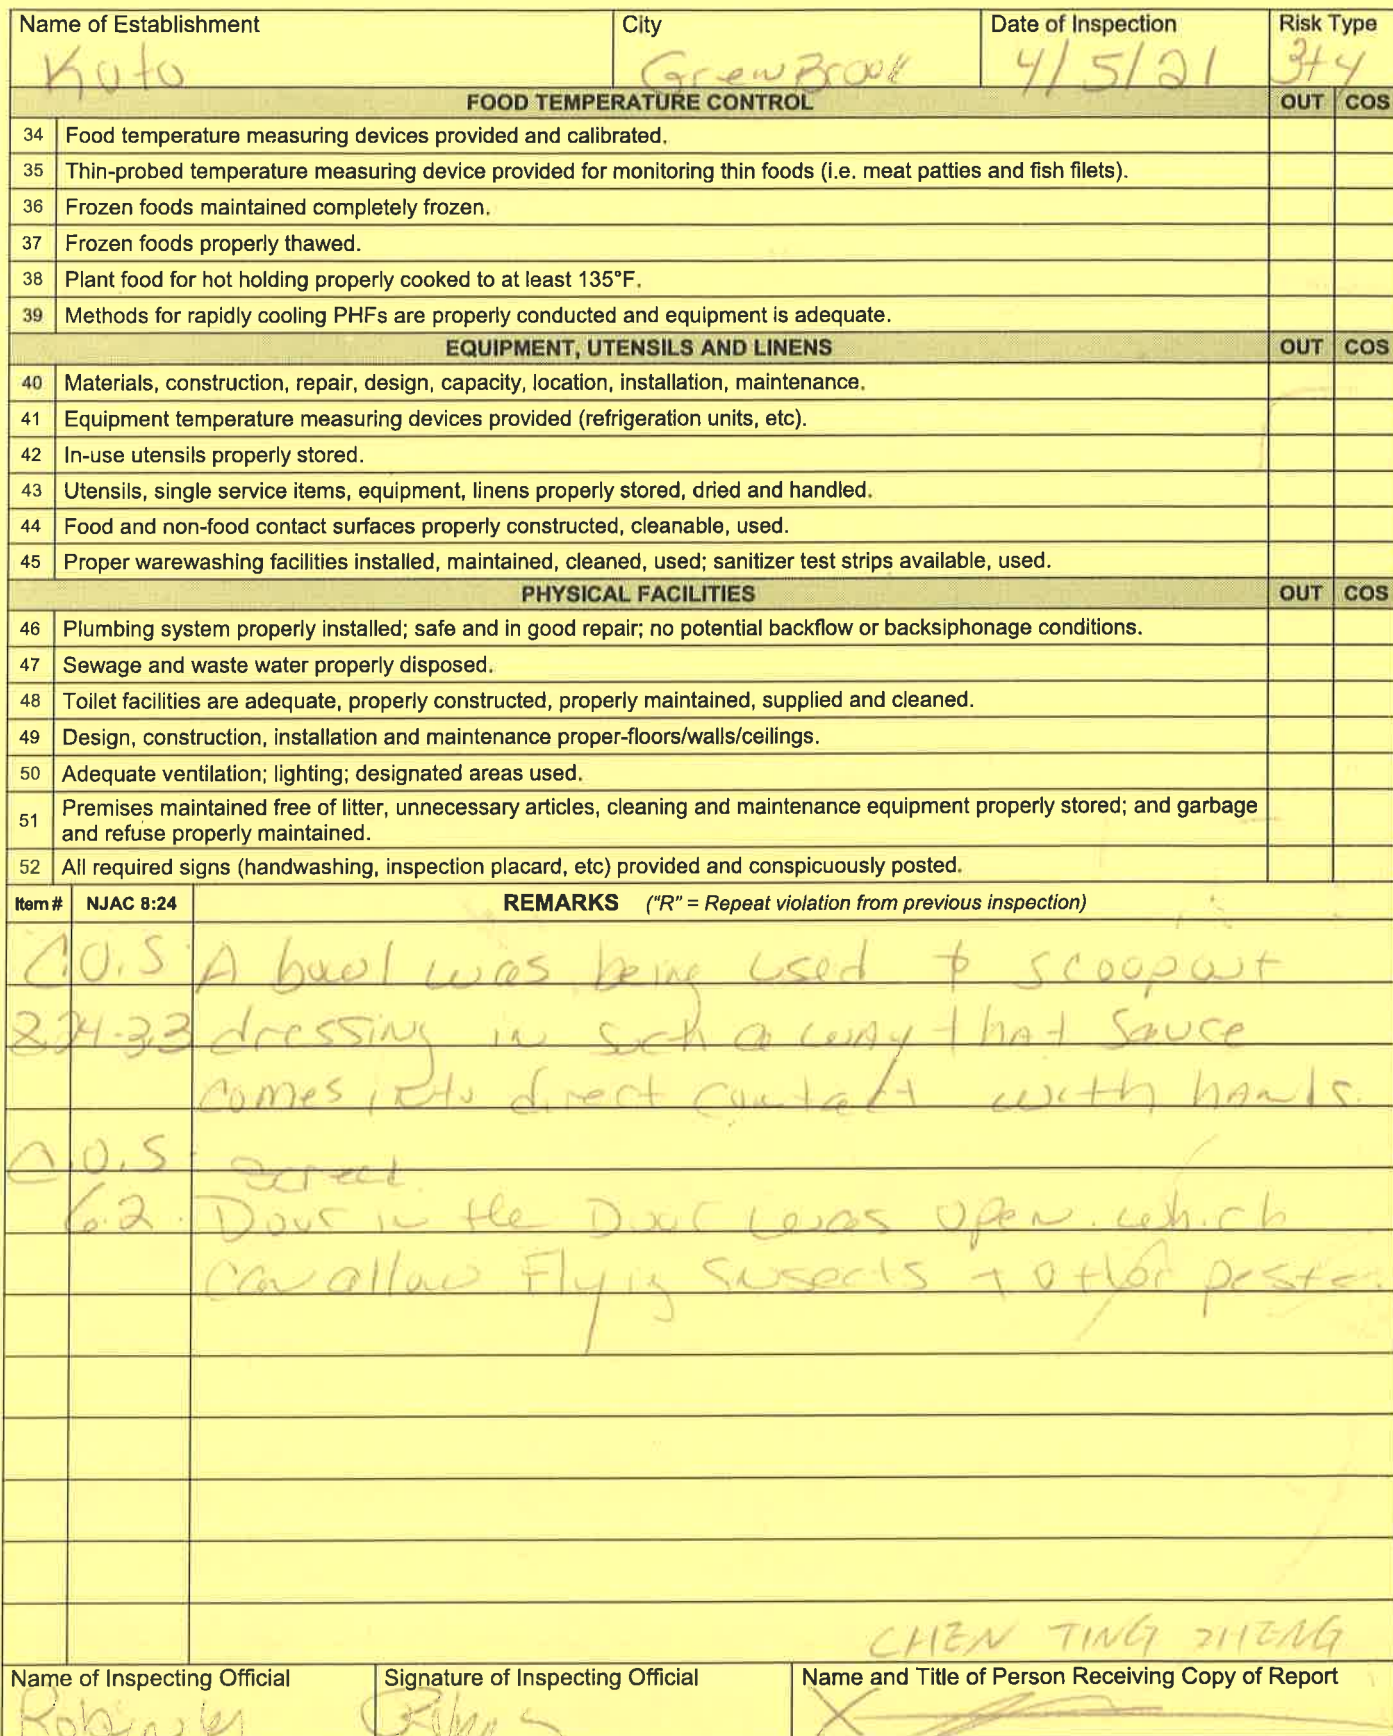 Name of Establishment City Date of Inspection Risk Type
Koto Green Brook 4/5/21 3+4
FOOD TEMPERATURE CONTROL OUT COS
34 Food temperature measuring devices provided and calibrated.
35 Thin-probed temperature measuring device provided for monitoring thin foods (i.e. meat patties and fish filets).
36 Frozen foods maintained completely frozen.
37 Frozen foods properly thawed.
38 Plant food for hot holding properly cooked to at least 135°F.
39 Methods for rapidly cooling PHFs are properly conducted and equipment is adequate.
EQUIPMENT, UTENSILS AND LINENS OUT COS
40 Materials, construction, repair, design, capacity, location, installation, maintenance.
41 Equipment temperature measuring devices provided (refrigeration units, etc).
42 In-use utensils properly stored.
43 Utensils, single service items, equipment, linens properly stored, dried and handled.
44 Food and non-food contact surfaces properly constructed, cleanable, used.
45 Proper warewashing facilities installed, maintained, cleaned, used; sanitizer test strips available, used.
PHYSICAL FACILITIES OUT COS
46 Plumbing system properly installed; safe and in good repair; no potential backflow or backsiphonage conditions.
47 Sewage and waste water properly disposed.
48 Toilet facilities are adequate, properly constructed, properly maintained, supplied and cleaned.
49 Design, construction, installation and maintenance proper-floors/walls/ceilings.
50 Adequate ventilation; lighting; designated areas used.
51 Premises maintained free of litter, unnecessary articles, cleaning and maintenance equipment properly stored; and garbage
and refuse properly maintained.
52 All required signs (handwashing, inspection placard, etc) provided and conspicuously posted.
Item # NJAC 8:24 REMARKS ("R" = Repeat violation from previous inspection)
C.O.S A bowl was being used to scoop out
8:24-3.3 dressing in such a way that Sauce
comes into direct contact with hands.
C.O.S
6.2. Door in the Door was open. which
can allow Flying Insects + other pests.
CHEN TING ZHENG
Name of Inspecting Official Signature of Inspecting Official Name and Title of Person Receiving Copy of Report
X